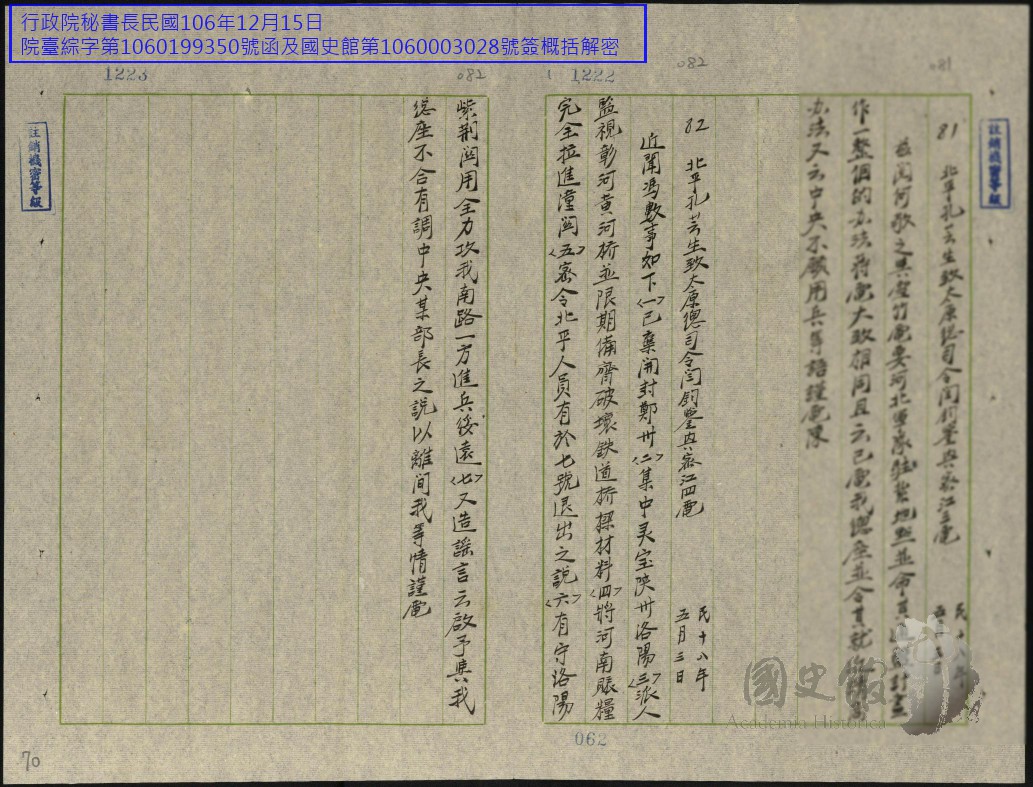 行政院秘書長民國106年12月15日
院臺綜字第1060199350號函及國史館第1060003028號簽概括解密
081
註銷機密等級
81 北平孔芸生致太原總司令閻
民十八年
作一整個的办法蔣電大致相同且云已電我總座並令其就
办法又云中央不願用兵等語謹電陳
1222
082
82 北平孔芸生致太原總司令閻鈞鑒與密江四電
民十八年
五月三日
近聞馮數事如下<一>已棄開封鄭州<二>集中灵宝陝州洛陽<三>派人
監視彰河黄河桥並限期備齊破壞鉄道桥樑材料<四>將河南賑糧
完全拉進潼関<五>密令北平人員有於七號退出之說<六>有守洛陽
062
1223
082
紫荆関用全力攻我南路一方進兵綏遠<七>又造謠言云啟予與我
総座不合有調中央某部長之說以離间我等情謹電
註銷機密等級
70
國史館
Academia Historica